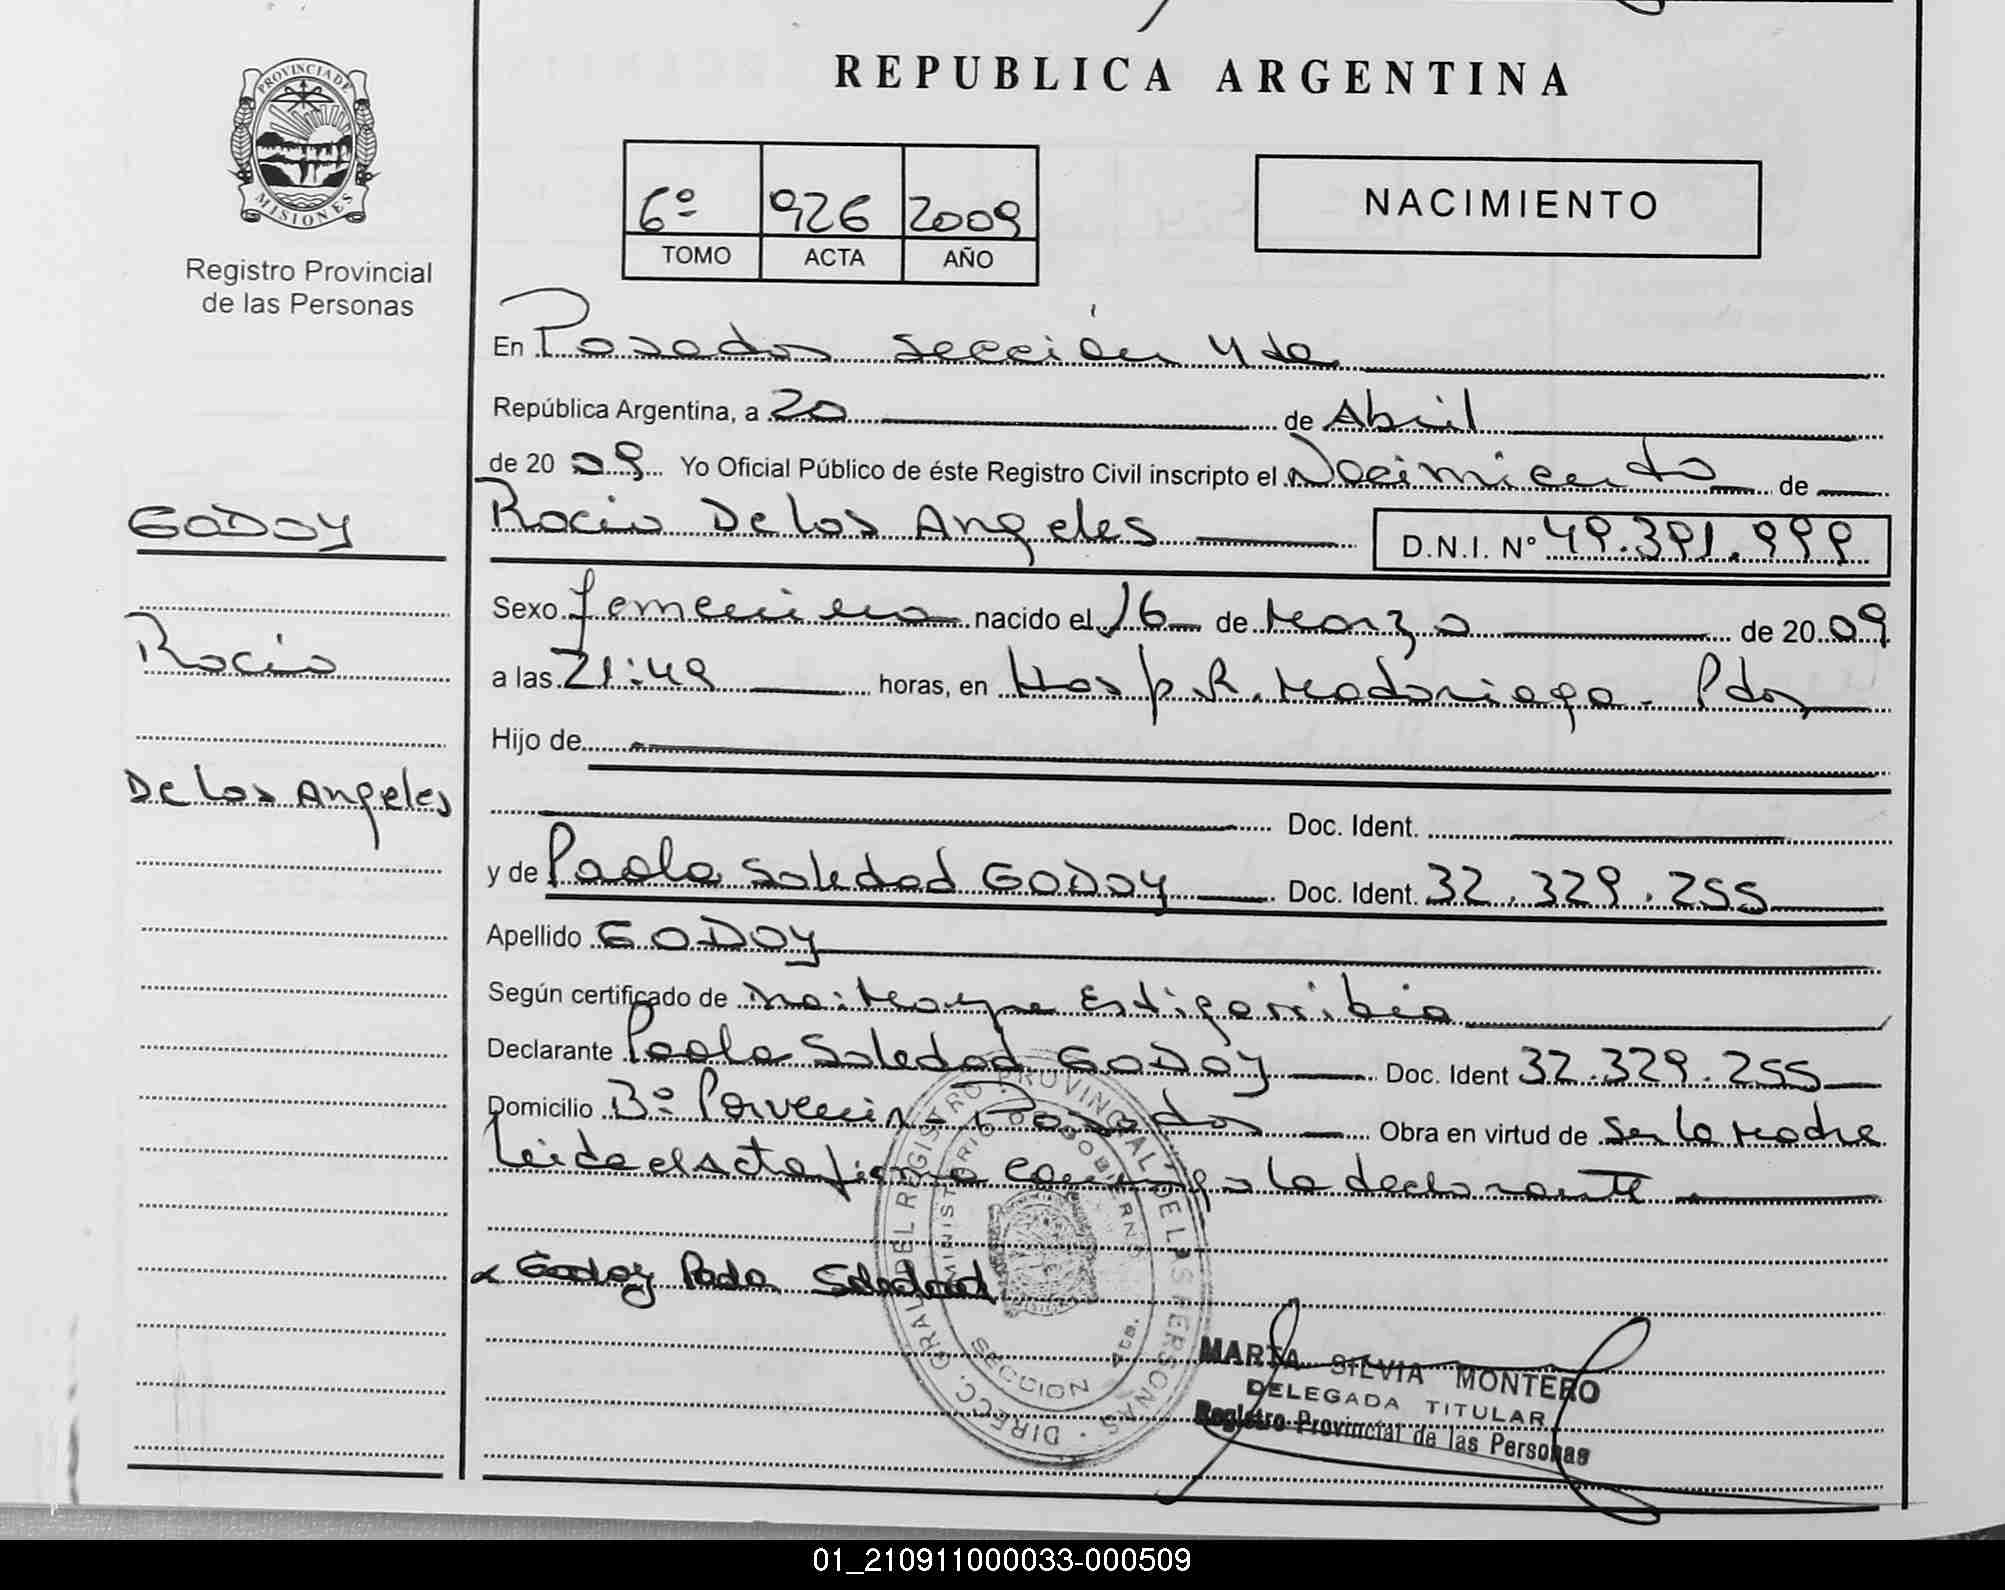 REPUBLICA ARGENTINA
PROVINCIA DE
MISIONES
Registro Provincial
de las Personas
6º 926 2009
TOMO ACTA AÑO
NACIMIENTO
En Posadas sección 4ta
República Argentina, a 20 de Abril
de 20 09 Yo Oficial Público de éste Registro Civil inscripto el Nacimiento de
GODOY
Rocio De los Angeles D.N.I. Nº 49.391.999
Sexo femenino nacido el 16 de Marzo de 20 09
Rocio
a las 21:49 horas, en Hosp. R. Madariaga - Pdas
Hijo de
De los Angeles
Doc. Ident.
y de Paola Soledad GODOY Doc. Ident. 32.329.255
Apellido GODOY
Según certificado de Estigarribia
Declarante Paola Soledad GODOY Doc. Ident 32.329.255
Domicilio Bº Porvenir - Posadas Obra en virtud de Ser la Madre
Leida el Acta firma conmigo la declarante
Godoy Paola Soledad
DIRECC. GRAL. DEL REGISTRO PROVINCIAL DE LAS PERSONAS
MINISTERIO DE GOBIERNO
SECCION 4ta.
MARTA SILVIA MONTERO
DELEGADA TITULAR
Registro Provincial de las Personas
01_210911000033-000509